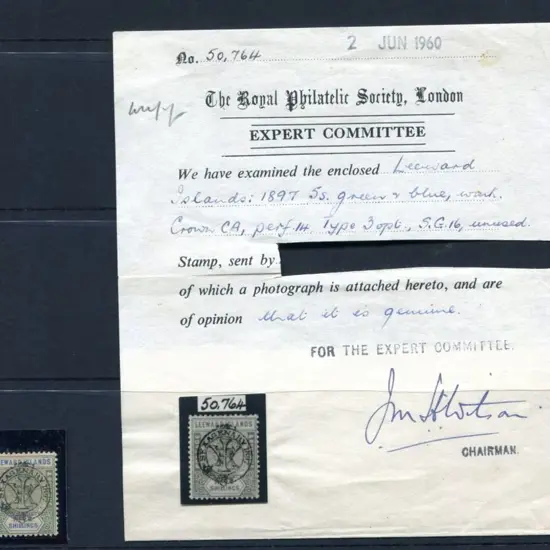 2 JUN 1960
No. 50,764
The Royal Philatelic Society, London
EXPERT COMMITTEE
We have examined the enclosed Leeward
Islands: 1897 5s. green & blue, wmk.
Crown CA, perf 14. Type 3 opt., S.G.16, unused.
Stamp, sent by
of which a photograph is attached hereto, and are
of opinion that it is genuine.
FOR THE EXPERT COMMITTEE.
CHAIRMAN.
50,764
LEEWARD ISLANDS
SHILLINGS
LEEWARD ISLANDS
SHILLINGS